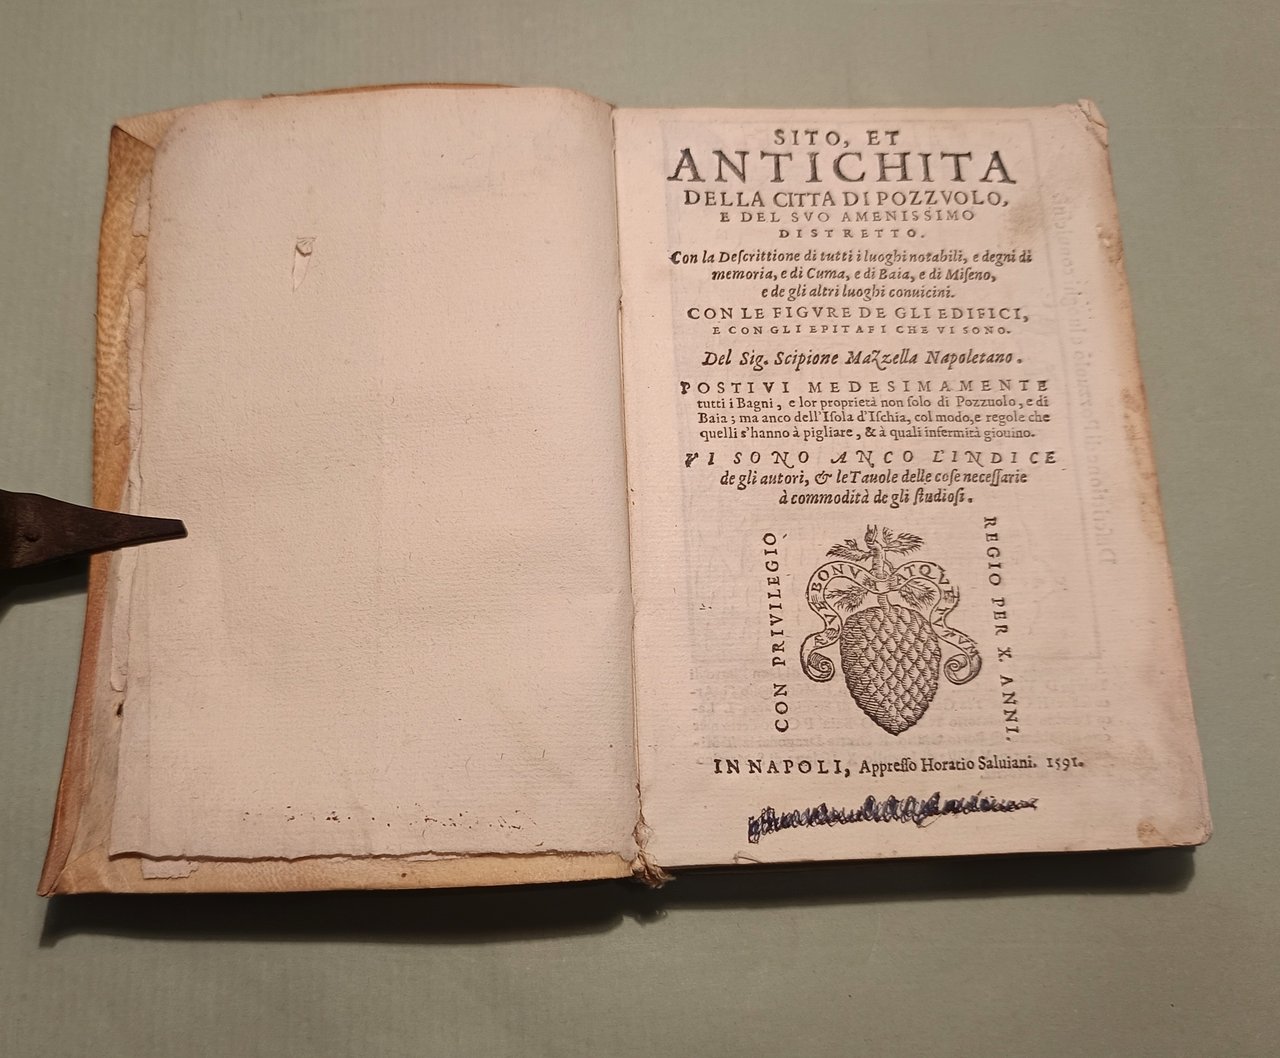 SITO, ET
ANTICHITA
DELLA CITTA DI POZZVOLO,
E DEL SVO AMENISSIMO
DISTRETTO.
Con la Deſcrittione di tutti i luoghi notabili, e degni di
memoria, e di Cuma, e di Baia, e di Miſeno,
e de gli altri luoghi conuicini.
CON LE FIGVRE DE GLI EDIFICI,
E CON GLI EPITAFI CHE VI SONO.
Del Sig. Scipione Mazzella Napoletano.
POSTIVI MEDESIMAMENTE
tutti i Bagni, e lor proprietà non ſolo di Pozzuolo, e di
Baia; ma anco dell'Iſola d'Iſchia, col modo, e regole che
quelli s'hanno à pigliare, & à quali infermità giouino.
VI SONO ANCO L'INDICE
de gli autori, & le Tauole delle coſe neceſſarie
à commodità de gli ſtudioſi.
CON PRIVILEGIO
BONV ATQVE
REGIO PER X. ANNI.
IN NAPOLI, Appreſſo Horatio Saluiani. 1591.